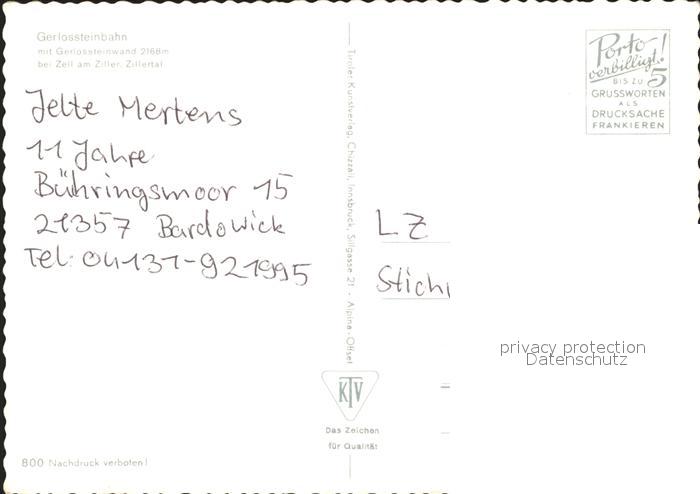 Gerlossteinbahn
mit Gerlossteinwand 2168m
bei Zell am Ziller, Zillertal
Jelte Mertens
11 Jahre
Bühringsmoor 15
21357 Bardowick
Tel: 04131-921995
800 Nachdruck verboten!
Tiroler Kunstverlag, Chizzali, Innsbruck, Sillgasse 21 - Alpina-Offset
KTV
Das Zeichen
für Qualität
Porto
verbilligt!
BIS ZU 5
GRUSSWORTEN
ALS
DRUCKSACHE
FRANKIEREN
LZ
Stich
privacy protection
Datenschutz